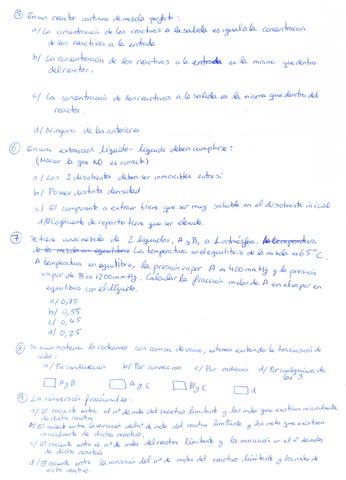 ⑤ En un reactor continuo de mezcla perfecta:
a/ La concentración de los reactivos a la salida es igual a la concentración
de los reactivos a la entrada
b/ La concentración de los reactivos a la entrada es la misma que dentro
del reactor.
c/ La concentración de los reactivos a la salida es la misma que dentro del
reactor.
d/ Ninguna de las anteriores
⑥ En una extracción líquido-líquido deben cumplirse:
(Marcar la que NO es correcta)
a/ Los 2 disolventes deben ser inmiscibles entre sí
b/ Poseer distinta densidad
c/ El componente a extraer tiene que ser muy soluble en el disolvente inicial
d/ El coeficiente de reparto tiene que ser elevado.
⑦ Se tiene una mezcla de 2 líquidos, A y B, a 1 atmósfera. La temperatura
de la mezcla en equilibrio La temperatura en el equilibrio de la mezcla es 65°C.
A temperatura en equilibrio, la presión vapor A es 400 mmHg y la presión
vapor de B es 1200 mmHg. Calcular la fracción molar de A en el vapor en
equilibrio con el líquido.
a/ 0,75
b/ 0,55
c/ 0,45
d/ 0,25
⑧ Si un sistema lo rodeamos con camisa de vacío, estamos evitando la trasmisión de
calor:
a/ Por conducción b/ Por convección c/ Por radiación d/ Por cualquiera de
las 3
A y B A y C B y C d
⑨ La conversión fraccional es:
a/ El cociente entre el nº de mols del reactivo limitante y los mols que existían inicialmente
de dicho reactivo
b/ El cociente entre la variación del nº de mols del reactivo limitante y los mols que existían
inicialmente de dicho reactivo.
c/ El cociente entre el nº de mols del reactivo limitante y la variación en el nº de mols
de dicho reactivo
d/ El cociente entre la variación del nº de moles del reactivo limitante y los moles de
dicho reactivo.